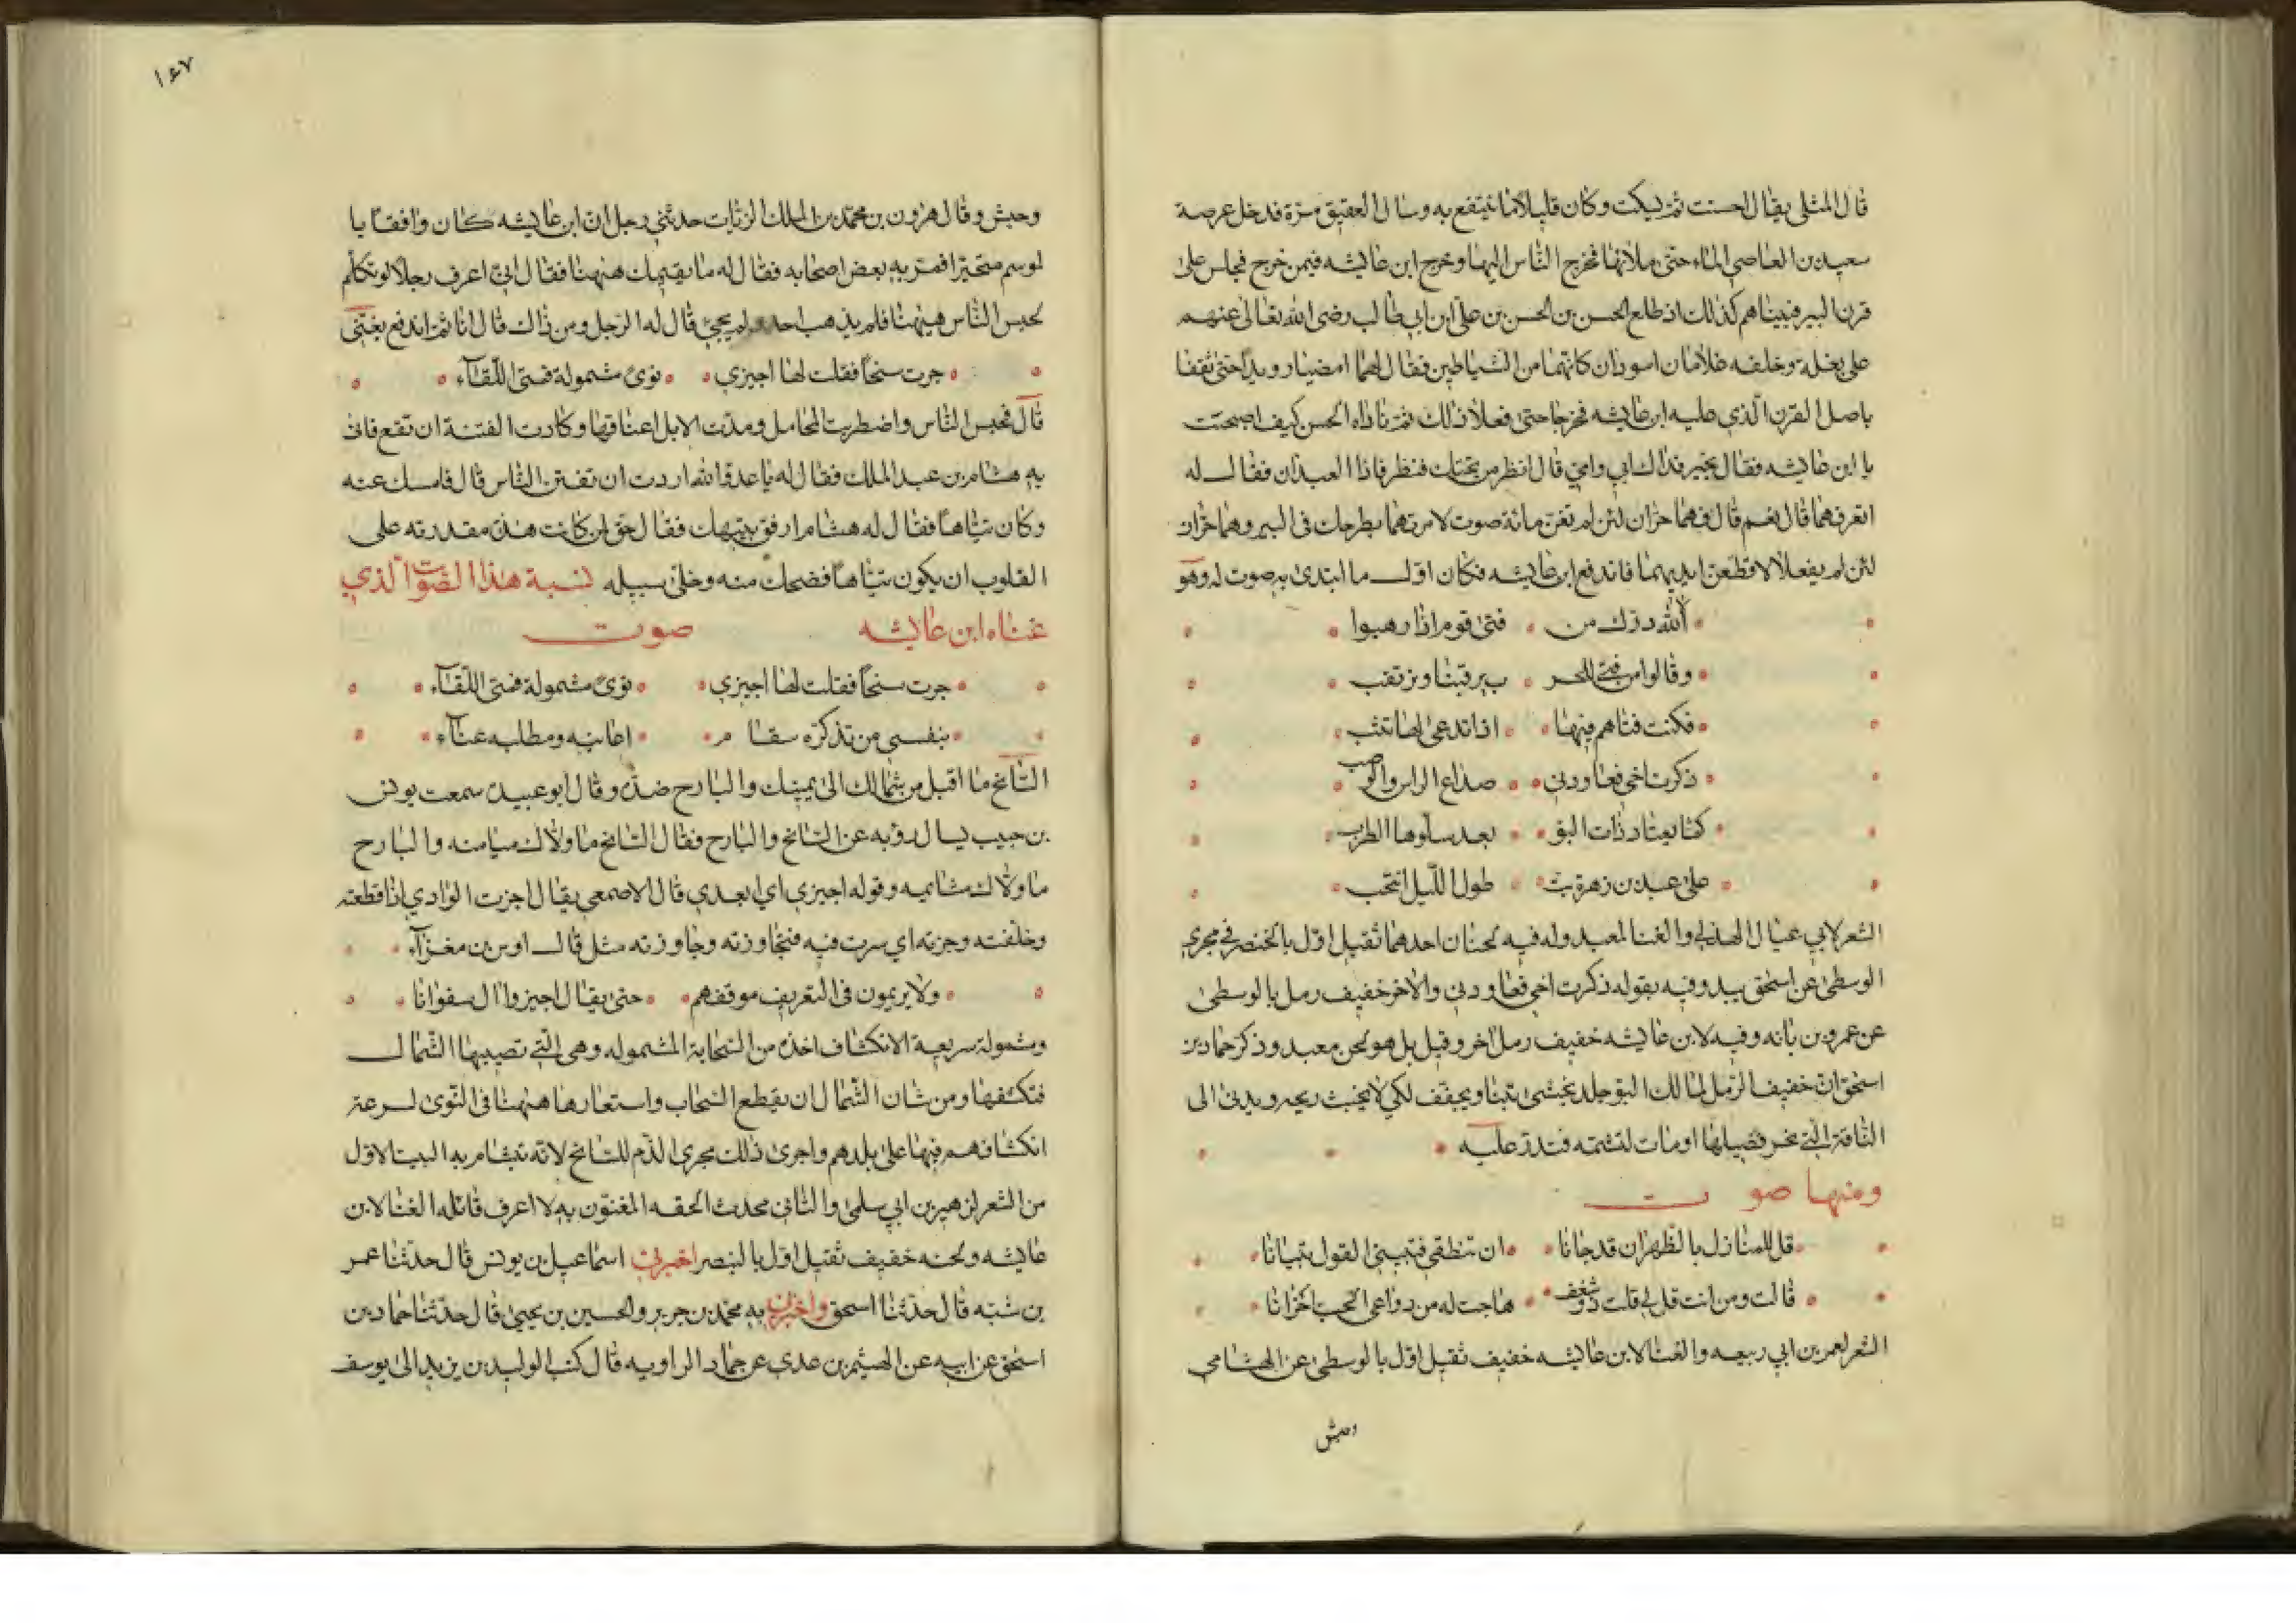 قال المثلي يقال احسنت ثم يسكت وكان قليلا ما ينتفع به وسال العقيق مرة فدخل عرصة
سعيد بن العاصي الماء حتى ملأتها فخرج الناس اليها وخرج ابن عايشه فيمن خرج فجلس على
قرن البير فبيناهم كذلك اذ طلع الحسن بن الحسن بن علي ابن ابي طالب رضى الله تعالى عنهم
على بغلة وخلفه غلامان اسودان كانهما من الشياطين فقال لهما امضيا رويدا حتى تقفا
باصل القرن الذي عليه ابن عايشه فخرجا حتى فعلا ذلك ثم ناداه الحسن كيف اصبحت
يا ابن عايشه فقال بخير فداك ابي وامي قال انظر من تحتك فنظر فاذا العبدان فقال له
اتعرفهما قال نعم قال فهما حران لئن لم تغن مائة صوت لامرتهما بطرحك في البير وهما حران
لئن لم يفعلا لاقطعن ايديهما فاندفع ابن عايشه فكان اول ما ابتدئ به صوت له وهو
ألله درك من فتى قوم اذا رهبوا
وقالوا من فتى للحر ب يرقبنا ويرتقب
فكنت فتاهم فيها اذا تدعى لها تثب
ذكرت اخي فعاودني صداع الراس والوصب
كما يعتاد ذات البو بعد سلوها الطرب
على عبد بن زهرة بت طول الليل انتحب
الشعر لابي عيال الهذلي والغنا لمعبد وله فيه لحنان احدهما ثقيل اول بالخنصر في مجرى
الوسطى عن اسحق يبدو فيه بقوله ذكرت اخي فعاودني والاخر خفيف رمل بالوسطى
عن عمرو بن بانه وفيه لابن عايشه خفيف رمل اخر وقيل بل هو لحن معبد وذكر حماد بن
اسحق ان خفيف الرمل لمالك البو جلد يحشى تبنا ويجفف لكي لا يخبث ريحه ويدنى الى
الناقة التي نحر فصيلها او مات لتشمه فتدر عليه
ومنها صوت
قل للمنازل بالظهران قد حانا ان تنطقي فتبيني القول تبيانا
قالت ومن انت قل لي قلت ذو شغف هاجت له من دواعي الحب احزانا
الشعر لعمر بن ابي ربيعه والغنا لابن عايشه خفيف ثقيل اول بالوسطى عن الهشامي
وحبش
١٤٧
وحبش وقال هرون بن محمد بن الملك الزيات حدثني رجل ان ابن عايشه كان واقفا با
لموسم متحيرا فمر به بعض اصحابه فقال له ما يقيمك ههنا فقال اني اعرف رجلا لو تكلم
لحبس الناس ههنا فلم يذهب احد ولم يجئ قال له الرجل ومن ذاك قال انا ثم اندفع يغني
جرت سنحا فقلت لها اجيزي نوى مشمولة فمتى اللقآء
قال فحبس الناس واضطربت المحامل ومدت الابل اعناقها وكادت الفتنة ان تقع فاتى
به هشام بن عبد الملك فقال له يا عدو الله اردت ان تفتن الناس قال فامسك عنه
وكان تياها فقال له هشام ارفق بتيهك فقال حق لمن كانت هذه مقدرته على
القلوب ان يكون تياها فضحك منه وخلى سبيله نسبة هذا الصوت الذي
غناه ابن عايشه صوت
جرت سنحا فقلت لها اجيزي نوى مشمولة فمتى اللقآء
بنفسي من تذكره سقا م اعانيه ومطلبه عنآء
السانح ما اقبل من شمالك الى يمينك والبارح ضده وقال ابو عبيده سمعت يونس
بن حبيب يسال رؤبه عن السانح والبارح فقال السانح ما ولاك ميامنه والبارح
ما ولاك مشايمه وقوله اجيزي اي ابعدي قال الاصمعي يقال اجزت الوادي اذا قطعته
وخلفته وجزته اي سرت فيه فتجاوزته وجاوزته مثل قال اوس بن مغرآء
ولا يريمون في التعريف موقفهم حتى يقال اجيزوا ال صفوانا
ومشمولة سريعة الانكشاف اخذه من السحابة المشموله وهي التي تصيبها الشمال
فتكشفها ومن شان الشمال ان يقطع السحاب واستعارها ههنا في النوى لسرعة
انكشافهم فيها على بلدهم واجرى ذلك مجرى الذم للسانح لانه يتشام به البيت الاول
من الشعر لزهير بن ابي سلمى والثاني محدث الحقه المغنون به لا اعرف قائله الغنا لابن
عايشه ولحنه خفيف ثقيل اول بالبنصر اخبرني اسماعيل بن يونس قال حدثنا عمر
بن شبه قال حدثنا اسحق واخبرني به محمد بن جرير والحسين بن يحيى قال حدثنا حماد بن
اسحق عن ابيه عن الهيثم بن عدي عن حماد الراويه قال كتب الوليد بن يزيد الى يوسف